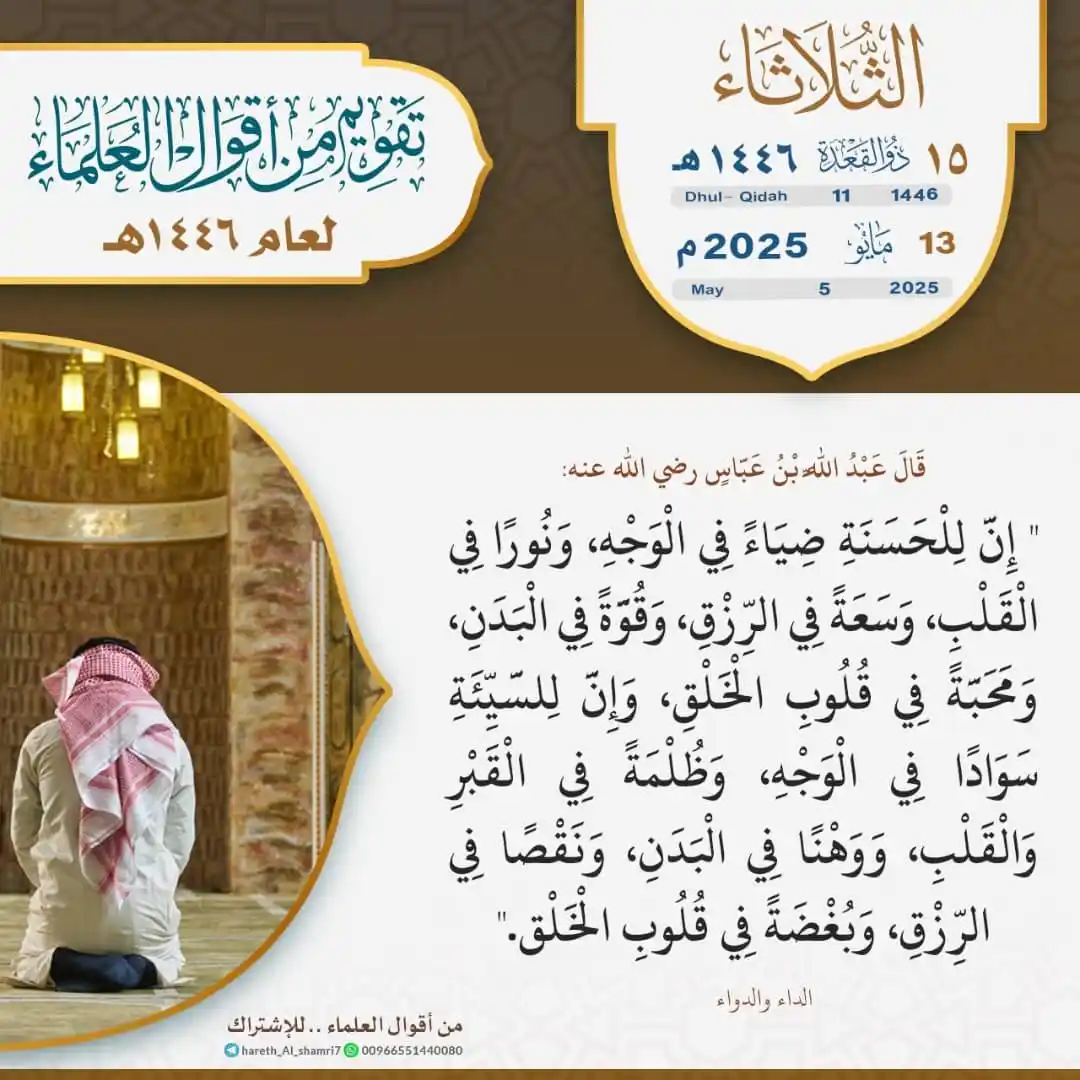 الثُّلَاثَاء
١٥ ذُوالقَعْدَة ١٤٤٦هـ
Dhul- Qidah 11 1446
13 مَايُو 2025م
May 5 2025
تَقْوِيم مِنْ أَقْوَال العُلَمَاء
لعام ١٤٤٦هـ
قَالَ عَبْدُ اللهِ بْنُ عَبّاسٍ رضي الله عنه:
" إِنّ لِلْحَسَنَةِ ضِيَاءً فِي الْوَجْهِ، وَنُورًا فِي
الْقَلْبِ، وَسَعَةً فِي الرِّزْقِ، وَقُوّةً فِي الْبَدَنِ،
وَمَحَبّةً فِي قُلُوبِ الْخَلْقِ، وَإِنّ لِلسّيِّئَةِ
سَوَادًا فِي الْوَجْهِ، وَظُلْمَةً فِي الْقَبْرِ
وَالْقَلْبِ، وَوَهْنًا فِي الْبَدَنِ، وَنَقْصًا فِي
الرِّزْقِ، وَبُغْضَةً فِي قُلُوبِ الْخَلْقِ."
الداء والدواء
من أقوال العلماء ..للإشتراك
hareth_Al_shamri7 00966551440080